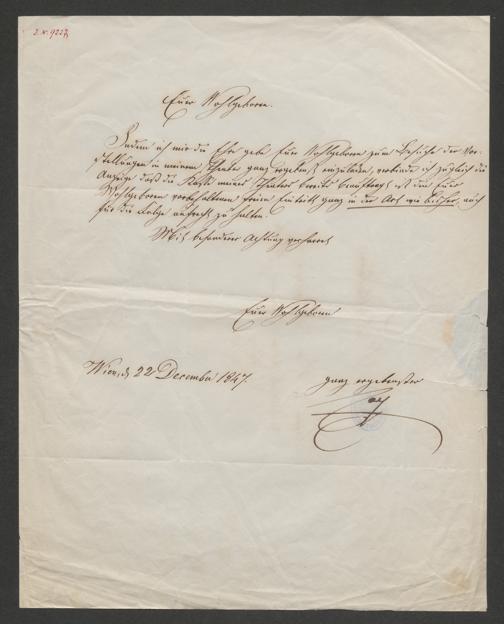 Z. N. 9227
Euer Wohlgeboren.
Indem ich mir die Ehre gebe Euer Wohlgeboren zum Besuche der Vor-
stellungen in meinem Theater ganz ergebenst einzuladen, verbinde ich zugleich die
Anzeige daß die Kasse meines Theaters bereits beauftragt ist den Euer
Wohlgeboren vorbehaltenen freien Eintritt ganz in der Art wie bisher, auch
für die Folge aufrecht zu halten.
Mit besonderer Achtung verharret
Euer Wohlgeboren
Wien, den 22 December 1847.
ganz ergebenster